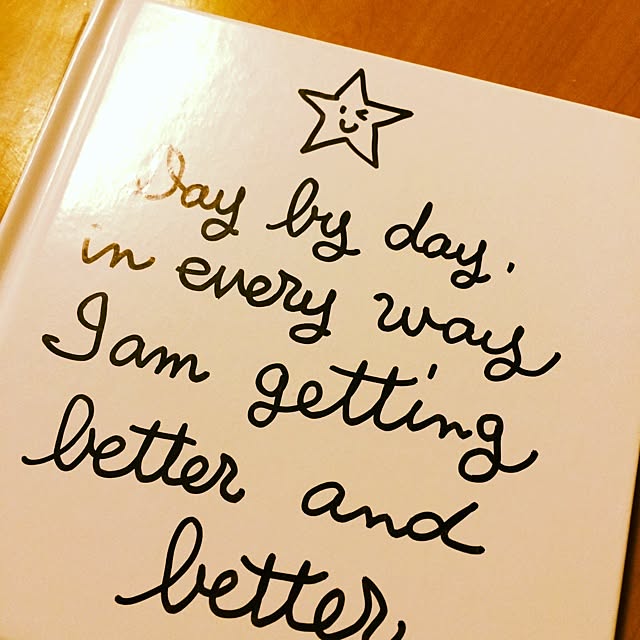 Day by day,
in every way
I am getting
better and
better,